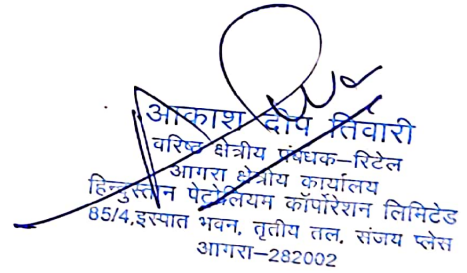 आकाश दीप तिवारी
वरिष्ठ क्षेत्रीय प्रबंधक-रिटेल
आगरा क्षेत्रीय कार्यालय
हिन्दुस्तान पेट्रोलियम कॉर्पोरेशन लिमिटेड
85/4,इस्पात भवन, तृतीय तल, संजय प्लेस
आगरा-282002